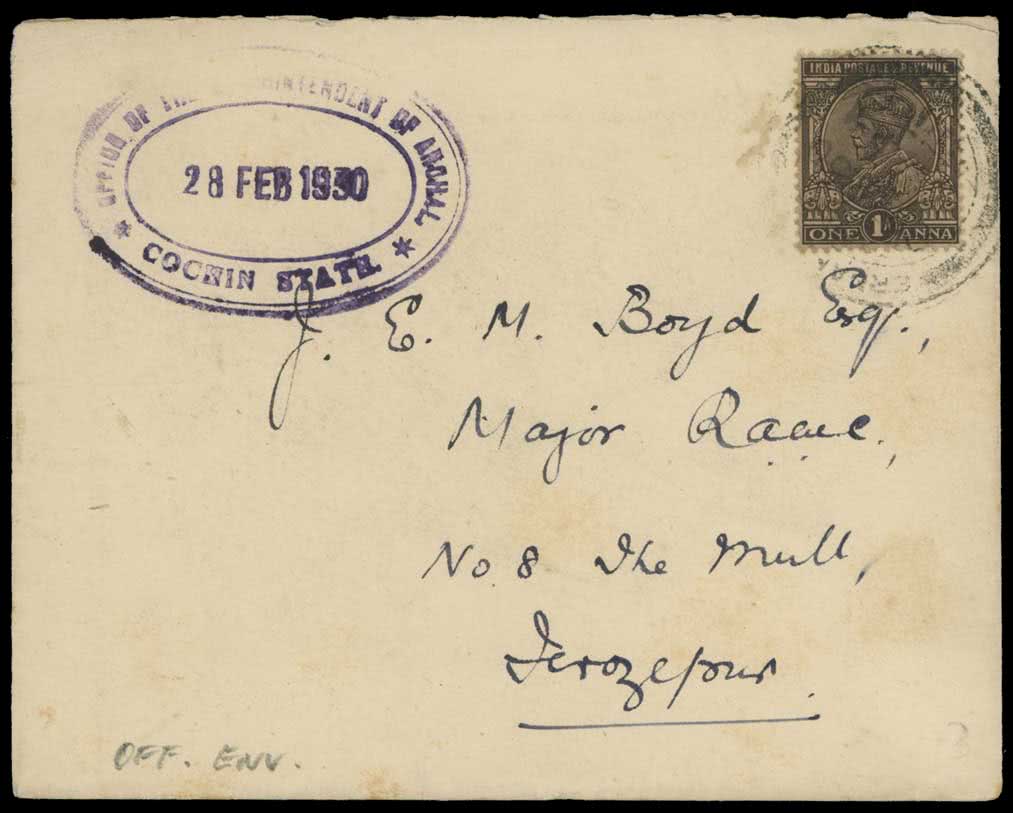 OFFICE OF THE SUPERINTENDENT OF ARCHÆL
28 FEB 1930
COCHIN STATE
INDIA POSTAGE & REVENUE
ONE 1A ANNA
J. E. M. Boyd Esq.,
Major
No. 8 The Mull,
Ferozepur.
OFF. ENV.